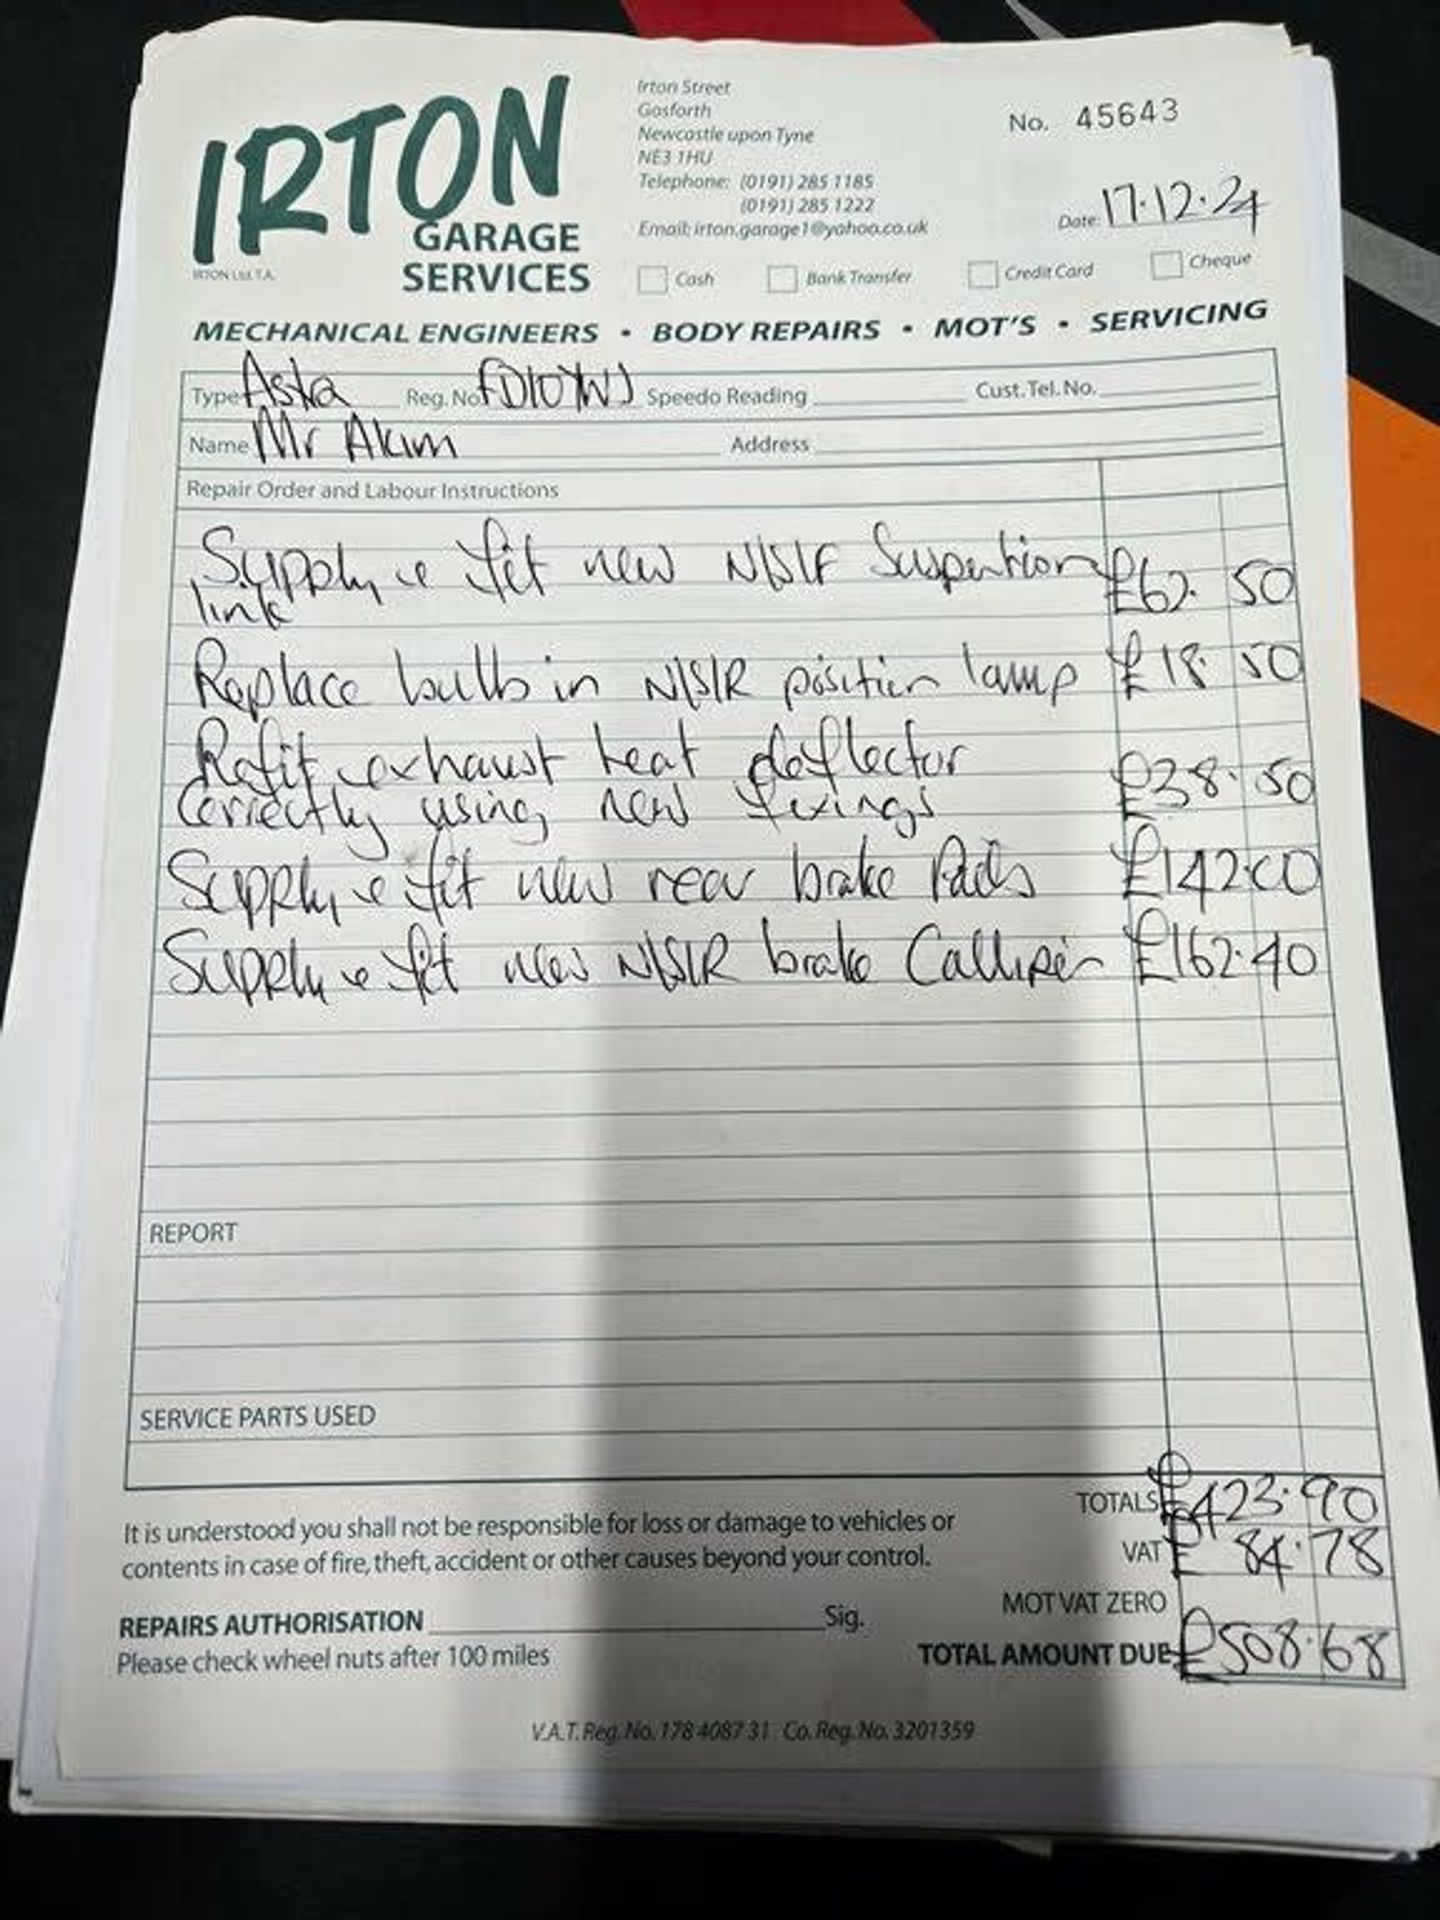 IRTON
GARAGE
SERVICES
IRTON Ltd. T.A.
Irton Street
Gosforth
Newcastle upon Tyne
NE3 1HU
Telephone: (0191) 285 1185
(0191) 285 1222
Email: irton.garage1@yahoo.co.uk
No. 45643
Date: 17.12.24
Cash Bank Transfer Credit Card Cheque
MECHANICAL ENGINEERS • BODY REPAIRS • MOT'S • SERVICING
Type Astra Reg. No. Speedo Reading Cust. Tel. No.
Name Mr Akim Address
Repair Order and Labour Instructions
Supply & fit new N/S/F Suspention £62.50
link
Replace bulb in N/S/R position lamp £18.50
Refit exhaust heat deflector
correctly using new fixings £38.50
Supply & fit new rear brake Pads £142.00
Supply & fit new N/S/R brake Calliper £162.40
REPORT
SERVICE PARTS USED
TOTALS £423.90
VAT £84.78
MOT VAT ZERO
TOTAL AMOUNT DUE £508.68
It is understood you shall not be responsible for loss or damage to vehicles or
contents in case of fire, theft, accident or other causes beyond your control.
REPAIRS AUTHORISATION Sig.
Please check wheel nuts after 100 miles
V.A.T. Reg. No. 178 4087 31 Co. Reg. No. 3201359